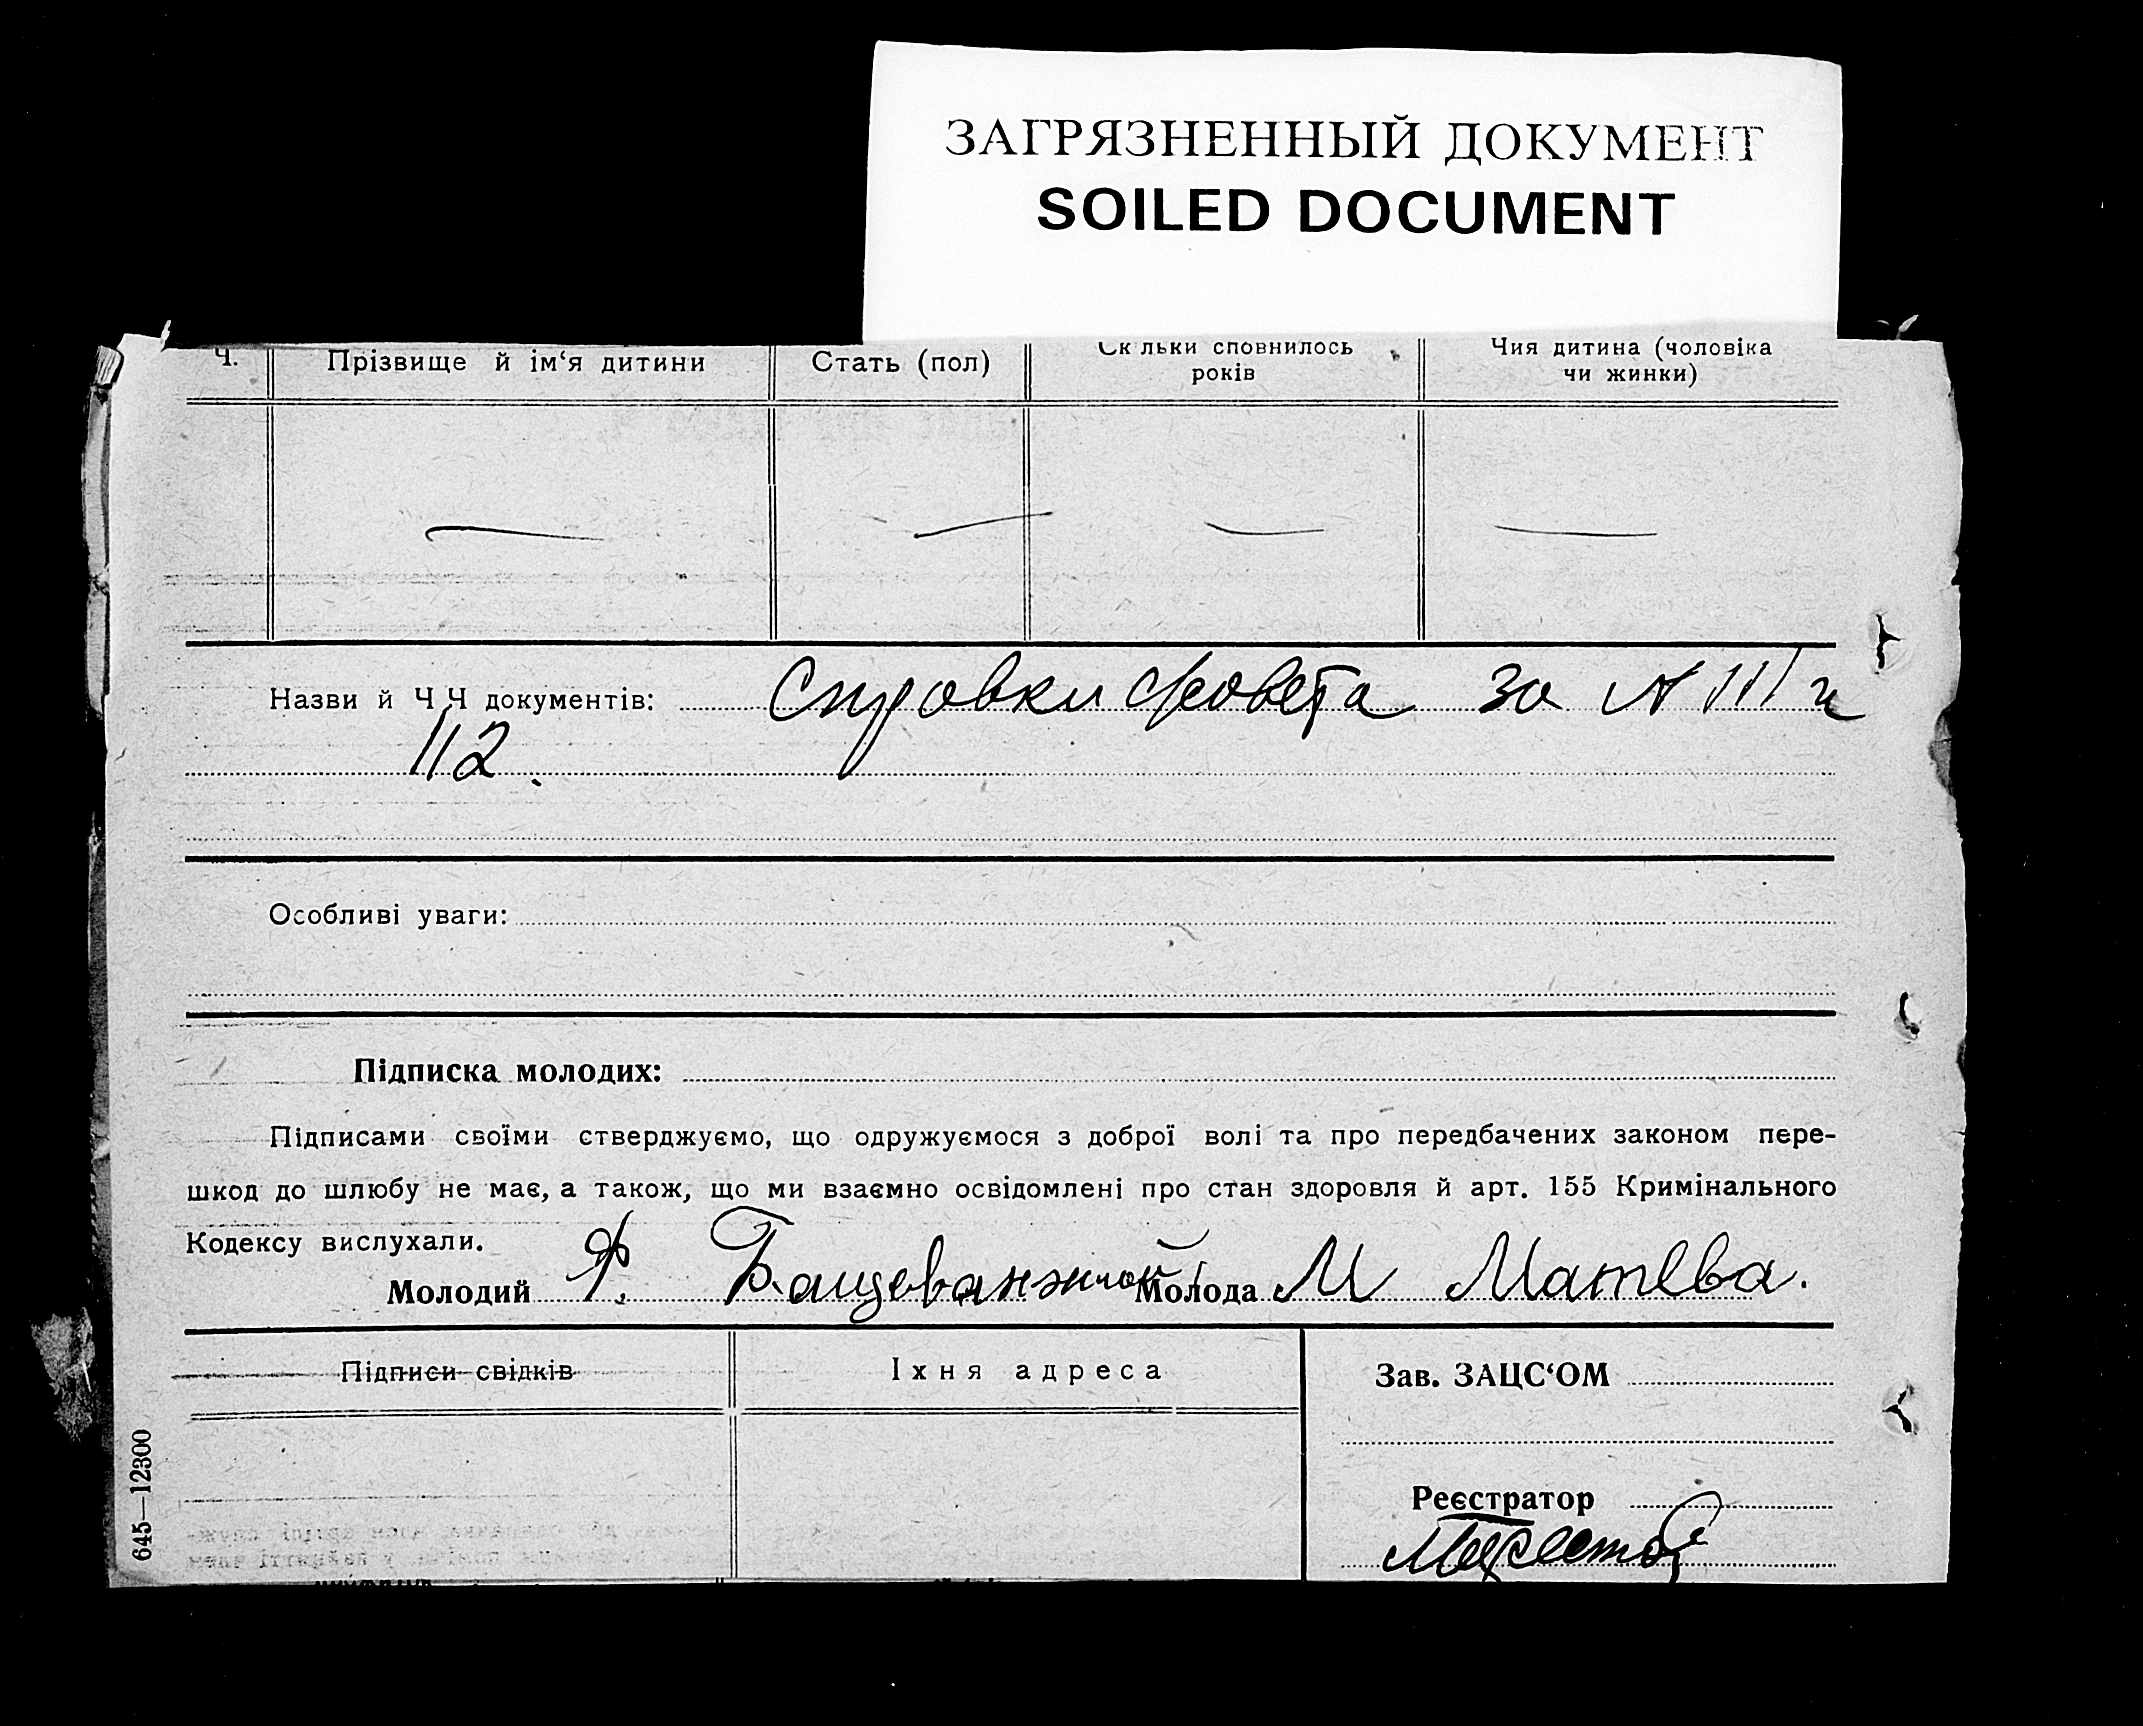 ЗАГРЯЗНЕННЫЙ ДОКУМЕНТ
SOILED DOCUMENT
Ч. Прізвище й ім‘я дитини Стать (пол) Ск льки сповнилось років Чия дитина (чоловіка чи жинки)
Назви й Ч Ч документів: Справки за N 111 и
112.
Особливі уваги:
Підписка молодих:
Підписами своїми стверджуємо, що одружуємося з доброї волі та про передбачених законом пере-
шкод до шлюбу не має, а також, що ми взаємно освідомлені про стан здоровля й арт. 155 Кримінального
Кодексу вислухали.
Молодий Ф. Молода М Матева.
Підписи свідків Іхня адреса Зав. ЗАЦС‘ОМ
Реєстратор
645—12300